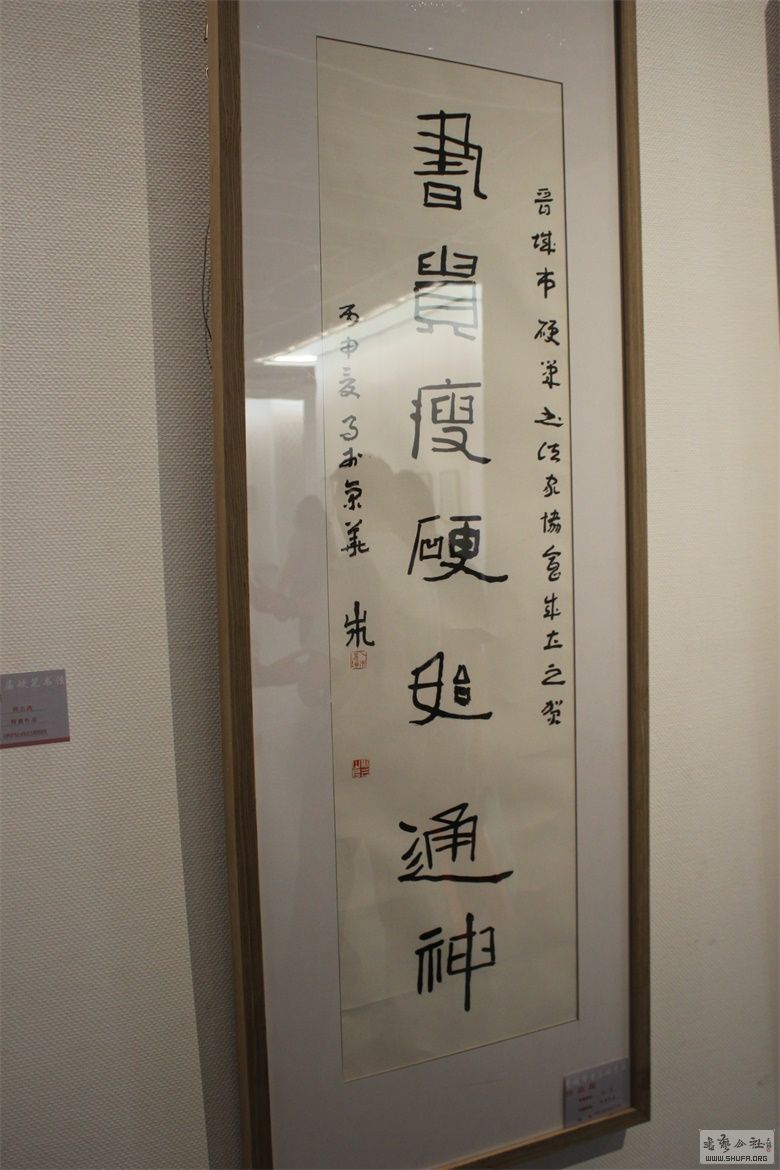 晉城市硬筆书法家協會成立之賀
書貴瘦硬始通神
丙申夏月於京華
届硬笔书法
書藝公社
WWW.SHUFA.ORG